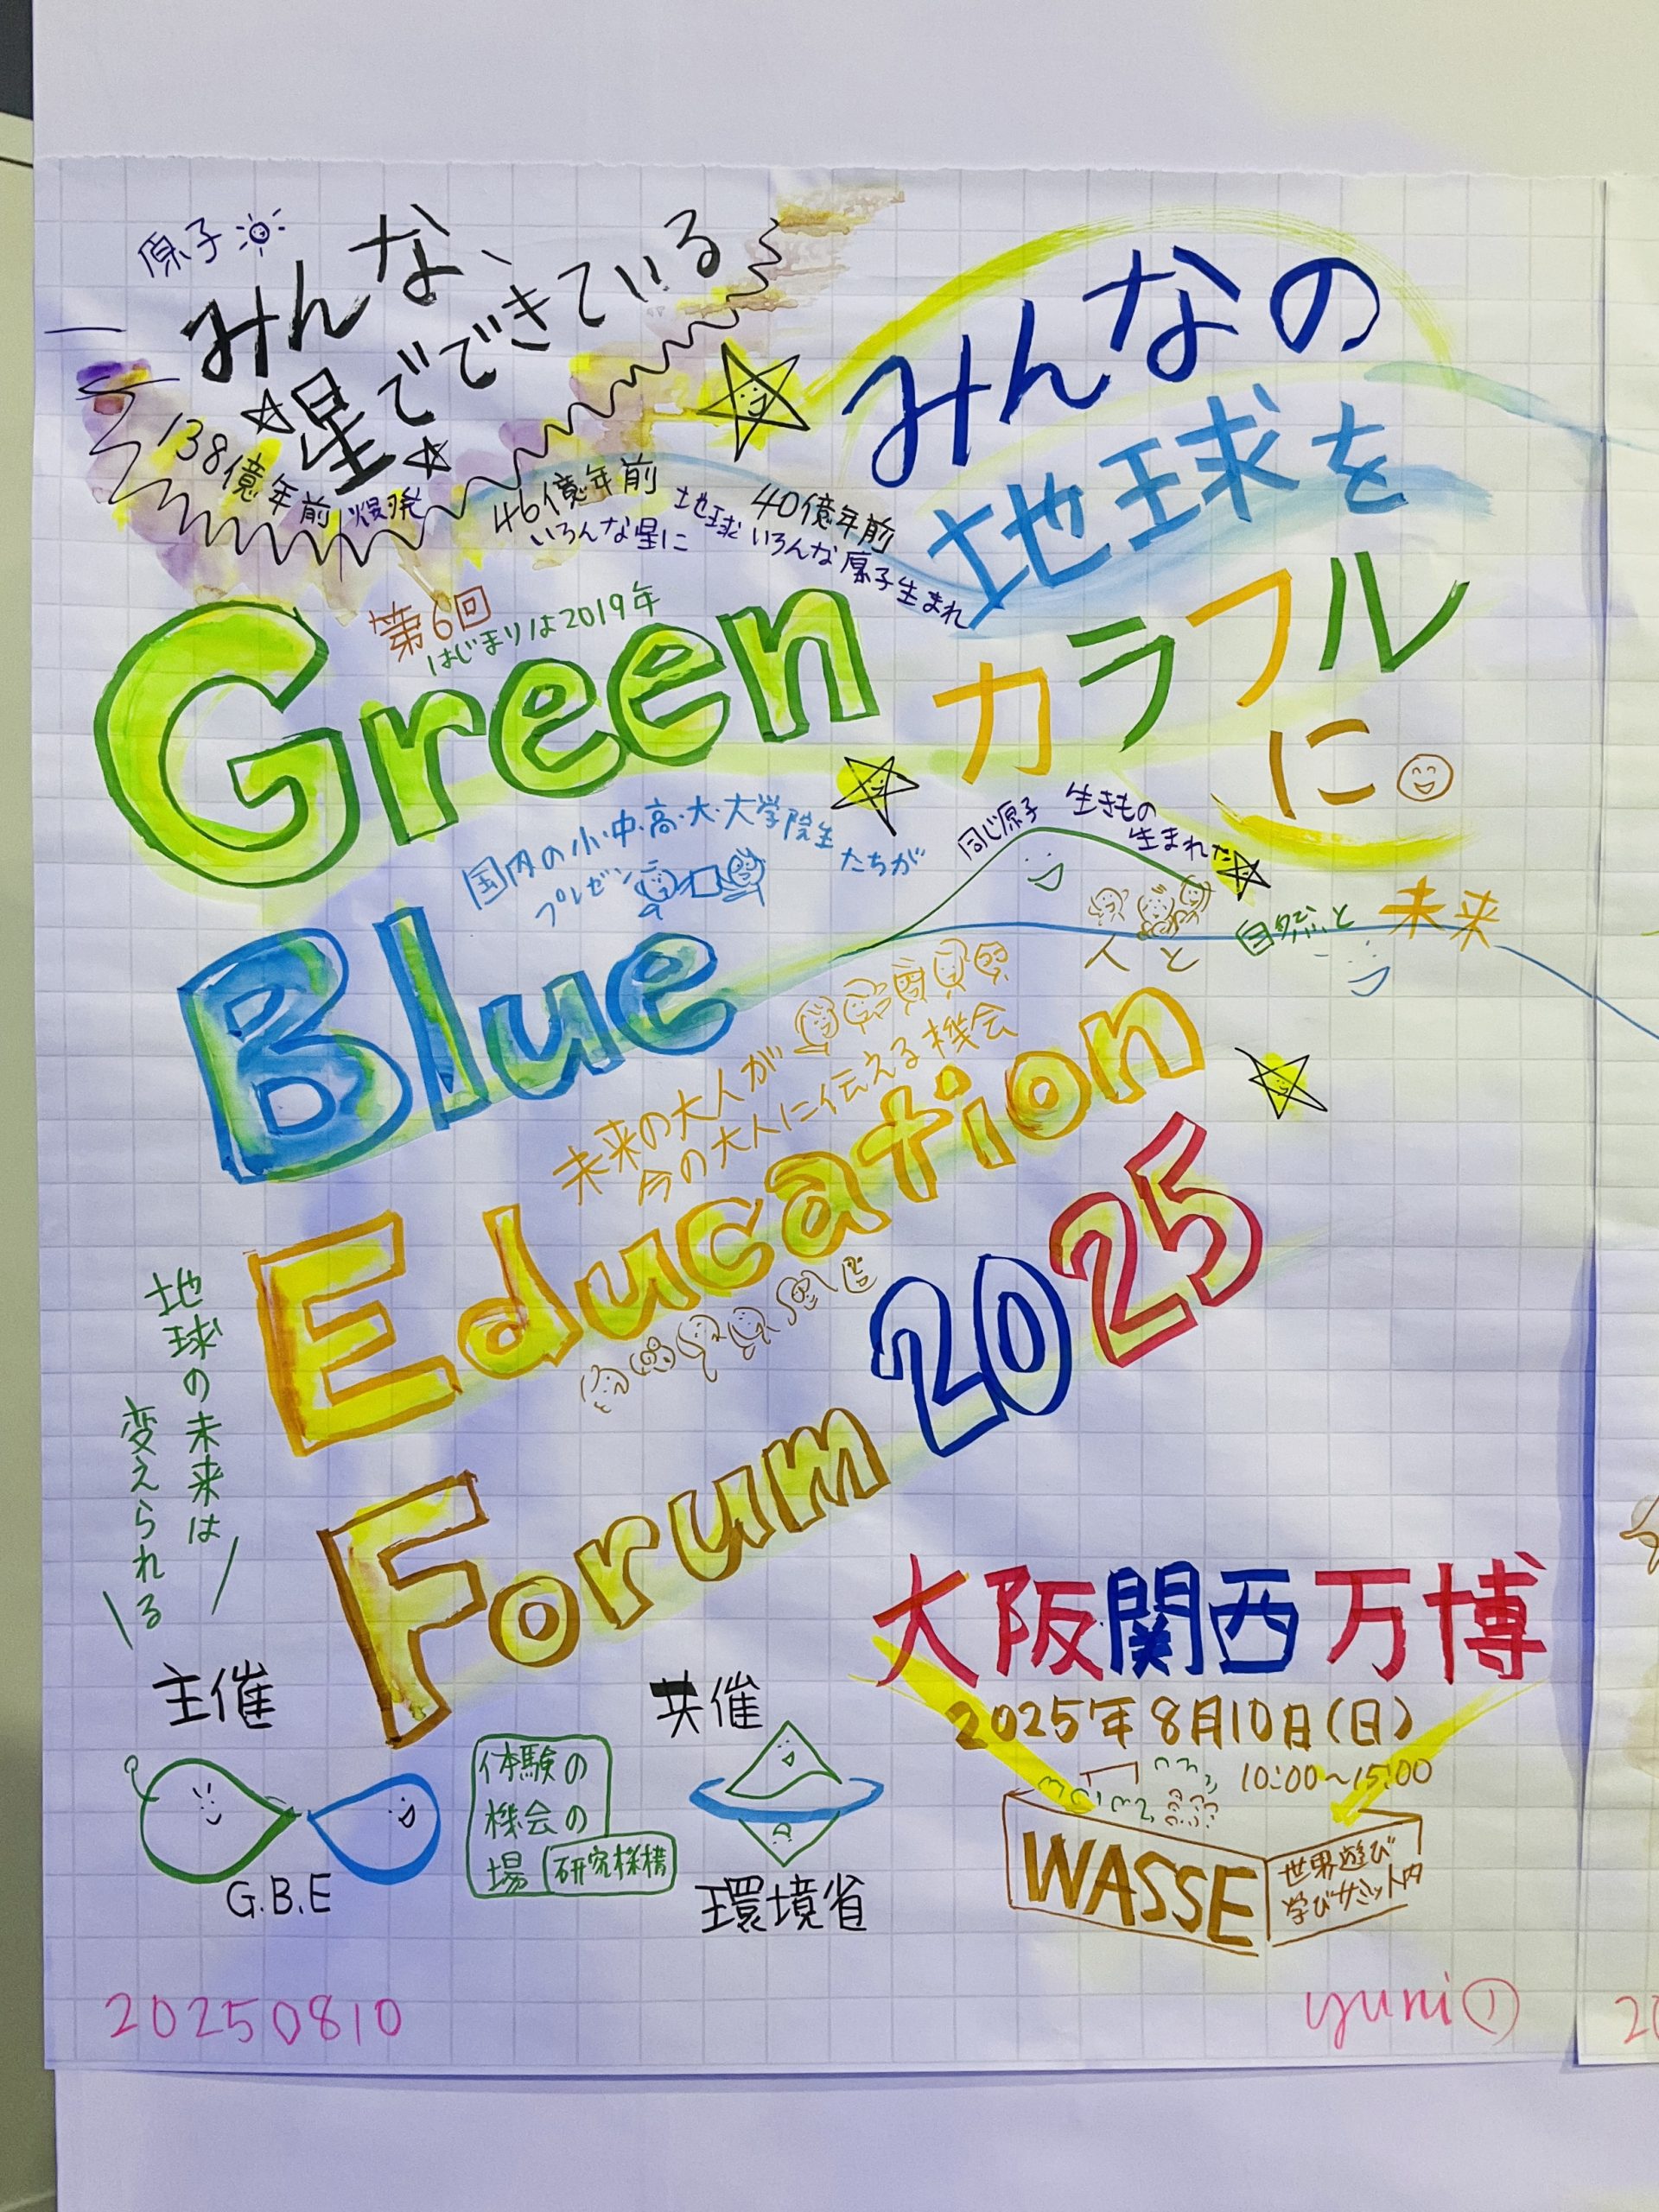 原子
みんな、
星でできている
138億年前
爆発
46億年前
いろんな星に
地球
40億年前
いろんな原子生まれ
みんなの
地球を
カラフル
に。
第6回
はじまりは2019年
Green
国内の小・中・高・大・大学院生
たちが
プレゼン
同じ原子
生きもの
生まれた
人と
自然と
未来
Blue
未来の大人が
今の大人に伝える機会
Education
Forum 2025
地球の未来は
変えられる
大阪関西万博
2025年8月10日(日)
10:00~15:00
WASSE
世界遊び
学びサミット内
主催
G.B.E
体験の
機会の
場
研究機構
共催
環境省
20250810
yuni①